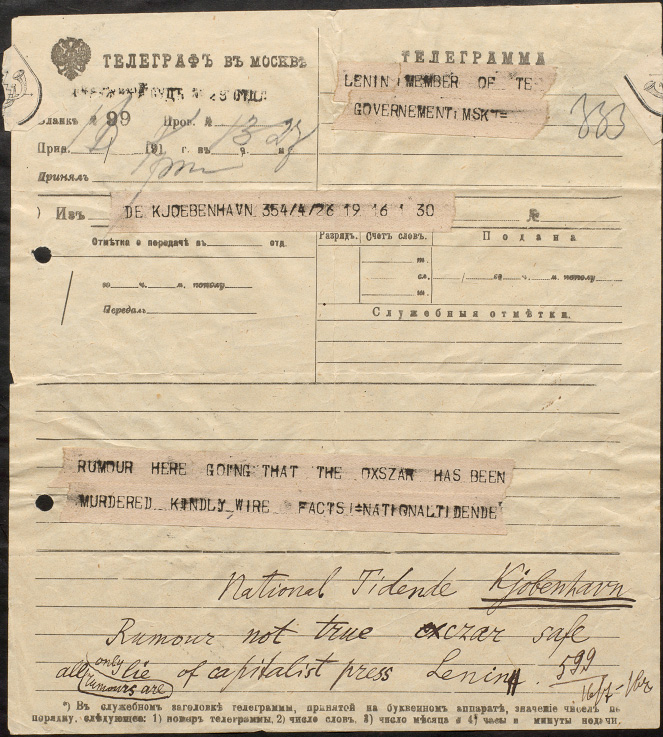 ТЕЛЕГРАФЪ ВЪ МОСКВѢ
ТЕЛЕГРАММА
LENIN MEMBER OF TE
GOVERNEMENT MSK=
333
Бланкъ № 99 Пров. №
Прин. 191 г. въ ч. м.
Принялъ
Изъ DE KJOEBENHAVN 354/4/26 19 16 1 30 №
Отмѣтка о передачѣ въ отд.
го ч. м. пополу
Передалъ
Разрядъ. Счетъ словъ. Подана
т.
сл. / го ч. м. пополу
т.
Служебныя отмѣтки.
RUMOUR HERE GOING THAT THE OXSZAR HAS BEEN
MURDERED KINDLY WIRE FACTS =NATIONALTIDENDE
National Tidende Kjöbenhavn
Rumour not true exczar safe
all rumours are only lie of capitalist press Lenin. 599
16/7
*) Въ служебномъ заголовкѣ телеграммы, принятой на буквенномъ аппаратѣ, значеніе чиселъ по
порядку, слѣдующее: 1) номеръ телеграммы. 2) число словъ. 3) число мѣсяца и 4) часы и минуты подачи.